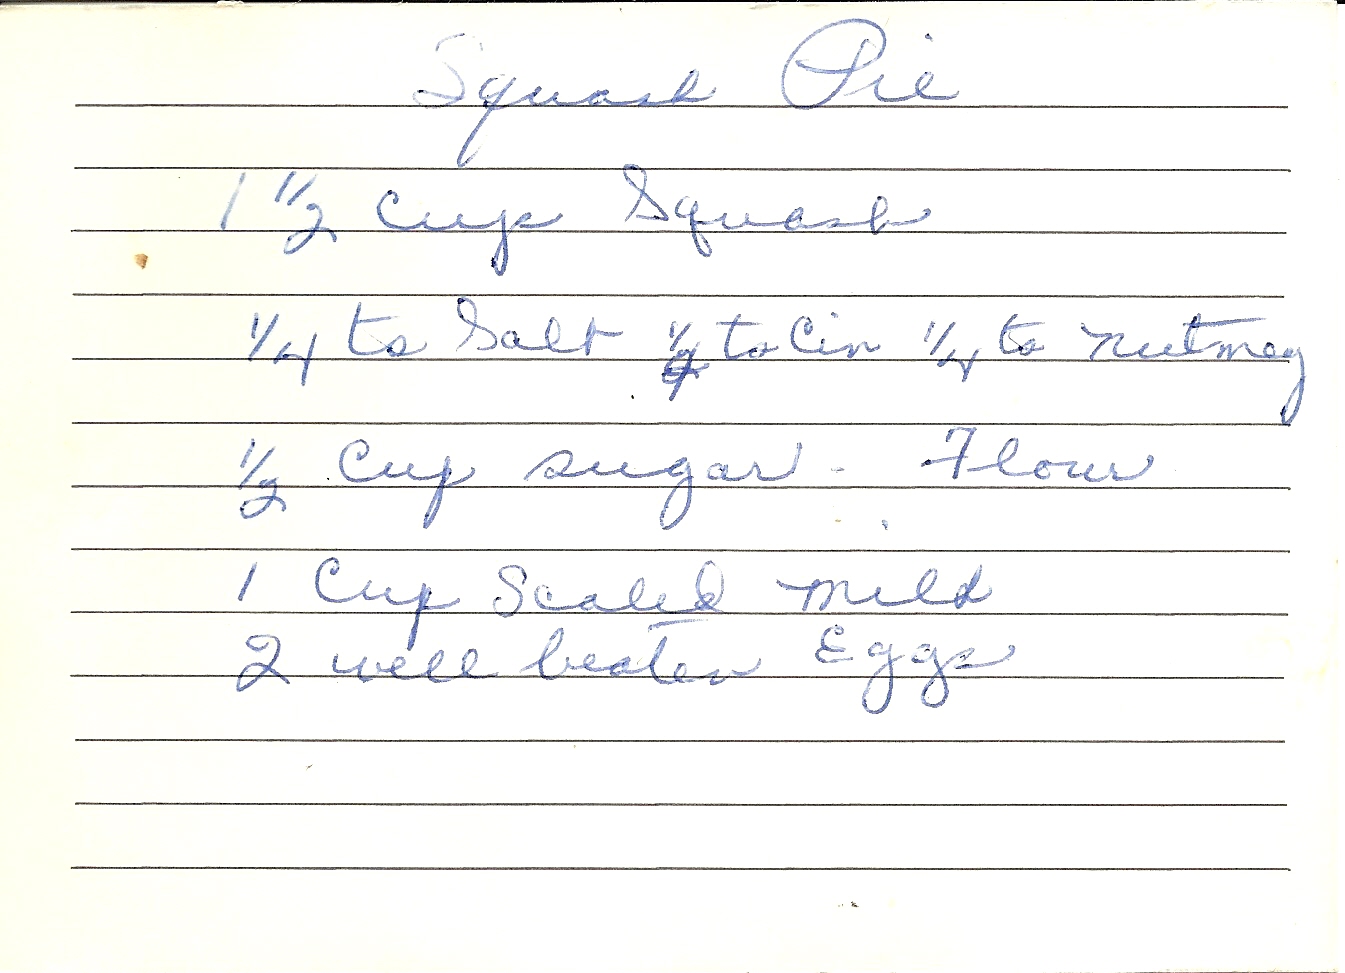 Squash Pie
1 1/2 cups Squash
1/4 ts Salt 1/2 ts Cin 1/4 ts nutmeg
1/2 Cup sugar - Flour
1 Cup Scaled milk
2 well beaten Eggs